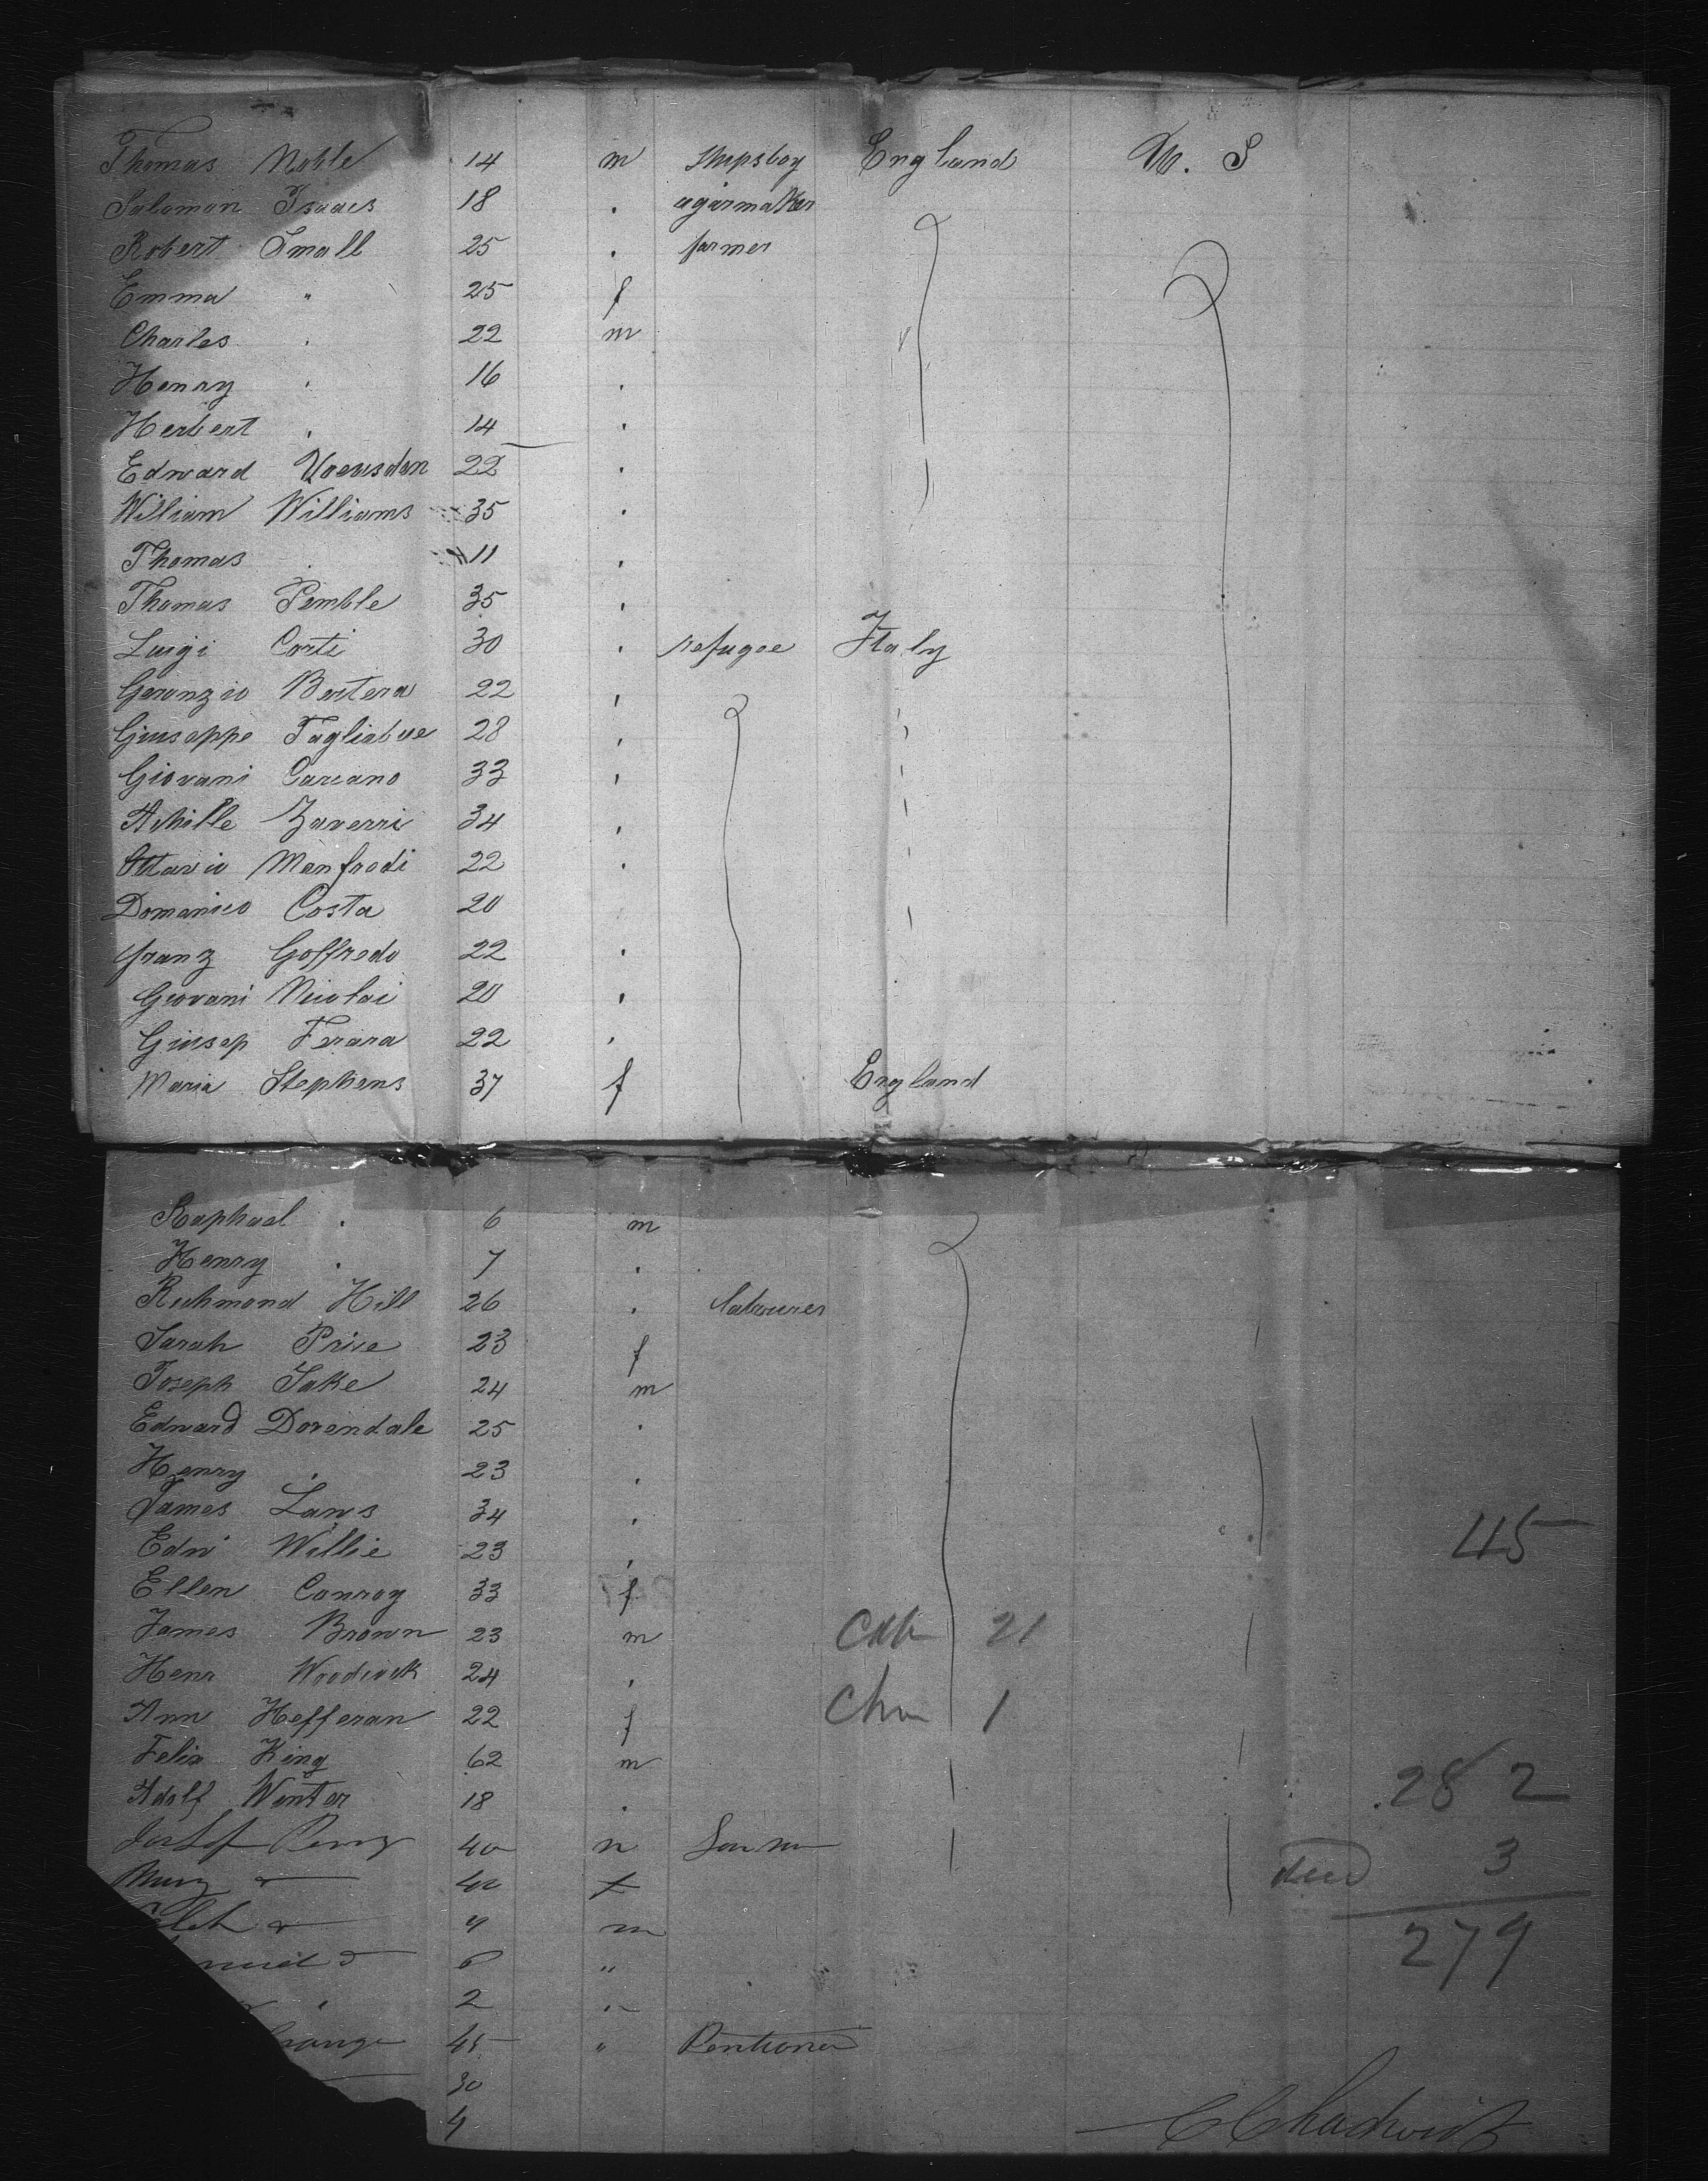 Thomas Noble 14 m shipsboy England U. S
Salomon Isaacs 18 . cigarmaker
Robert Small 25 . farmer
Emma " 25 f
Charles . 22 m
Henry . 16 .
Herbert . 14 .
Edward 22 .
William Williams 35 .
Thomas . 11 .
Thomas Pemble 35 .
Luigi Corti 30 . refugee Italy
Geronzio Bertera 22 .
Giuseppe Tagliabue 28 .
Giovani Carcano 33 .
Achille Zaverri 34 .
Ottavio Manfredi 22 .
Domenico Costa 20
Franz Goffredo 22 .
Giovani Nicolai 20 .
Giusep Ferara 22 .
Maria Stephens 37 f England
Raphael . 6 m
Henry . 7 .
Richmond Hill 26 . labourer
Sarah Price 23 f
Joseph Jake 24 m
Edward Dovendale 25 .
Henry . 23 .
James Laws 34 .
45
Edw Willie 23 .
Ellen Conroy 33 f
James Brown 23 m 21
Henr Woodcock 24 .
Ann Hefferan 22 f 1
Felix King 62 m
282
Adolf Winter 18 .
Perry 40 m
3
Mary 40 f
4 m
279
6 "
2 "
45 " Pentioner
30
4
C Chadwick